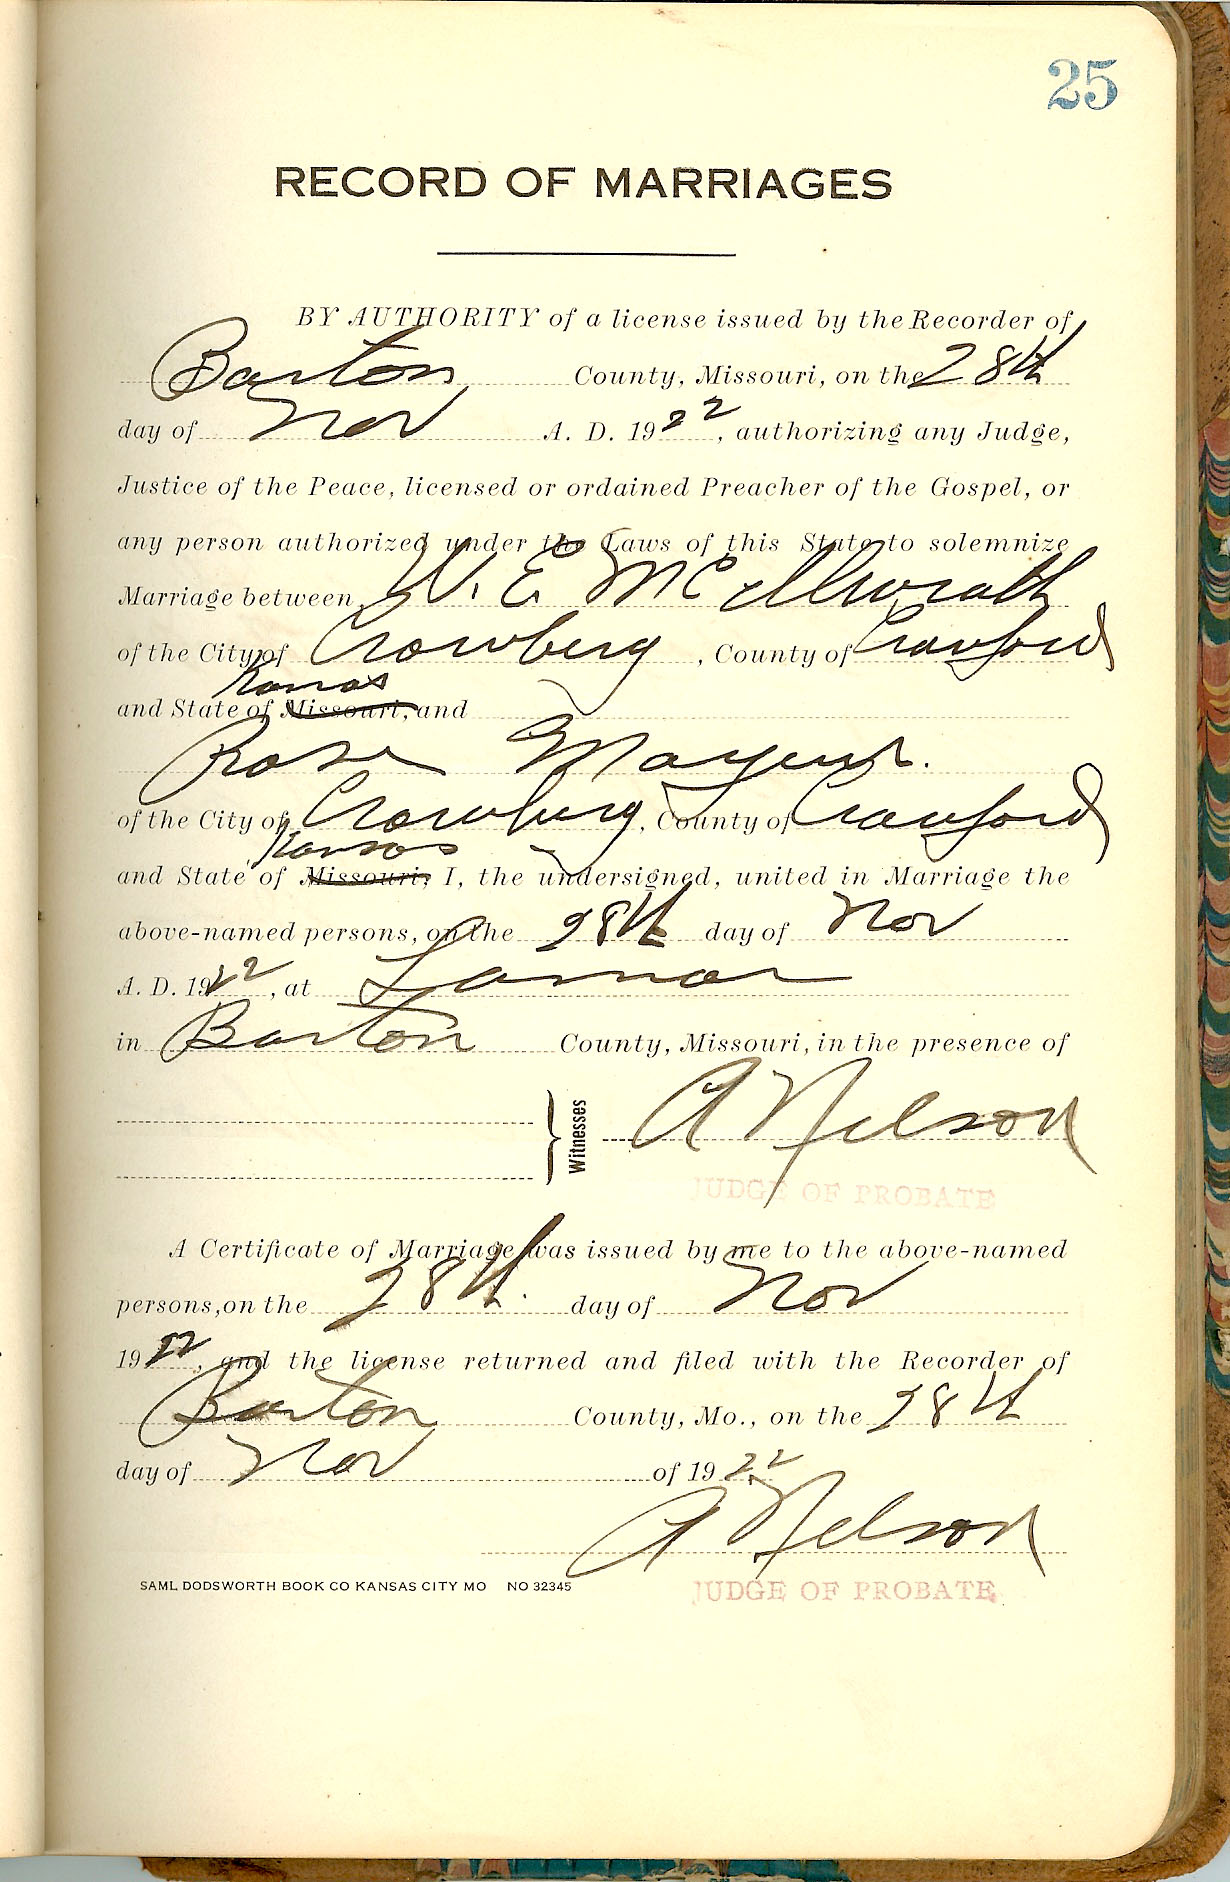 25
RECORD OF MARRIAGES
BY AUTHORITY of a license issued by the Recorder of
Barton County, Missouri, on the 28th
day of Nov A. D. 1922, authorizing any Judge,
Justice of the Peace, licensed or ordained Preacher of the Gospel, or
any person authorized under the Laws of this State to solemnize
Marriage between W. E. McIllwrath
of the City of Crowberg, County of Crawford
Kansas
and State of Missouri, and
Rose Mayeur.
of the City of Crowberg, County of Crawford
Kansas
and State of Missouri, I, the undersigned, united in Marriage the
above-named persons, on the 28th day of Nov
A. D. 1922, at Lamar
in Barton County, Missouri, in the presence of
Witnesses A Nelson
JUDGE OF PROBATE
A Certificate of Marriage was issued by me to the above-named
persons, on the 28th. day of Nov
1922, and the license returned and filed with the Recorder of
Barton County, Mo., on the 28th
day of Nov of 1922
A Nelson
SAML DODSWORTH BOOK CO KANSAS CITY MO NO 32345
JUDGE OF PROBATE